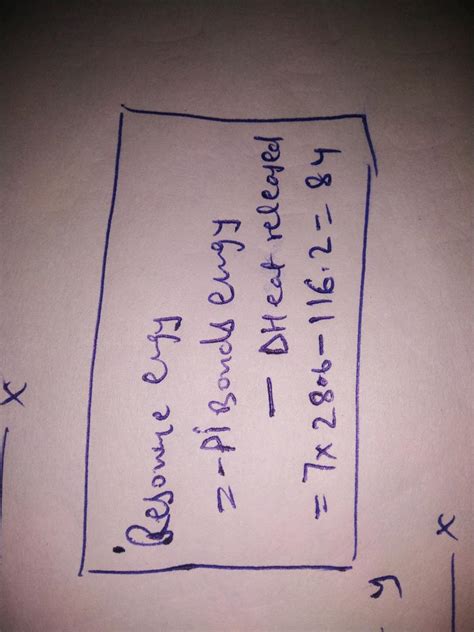 Resonance ergy
= -Pi Bonds engy
- DHeat released
= 7x 28.6 - 116.2 = 84
x
y
x